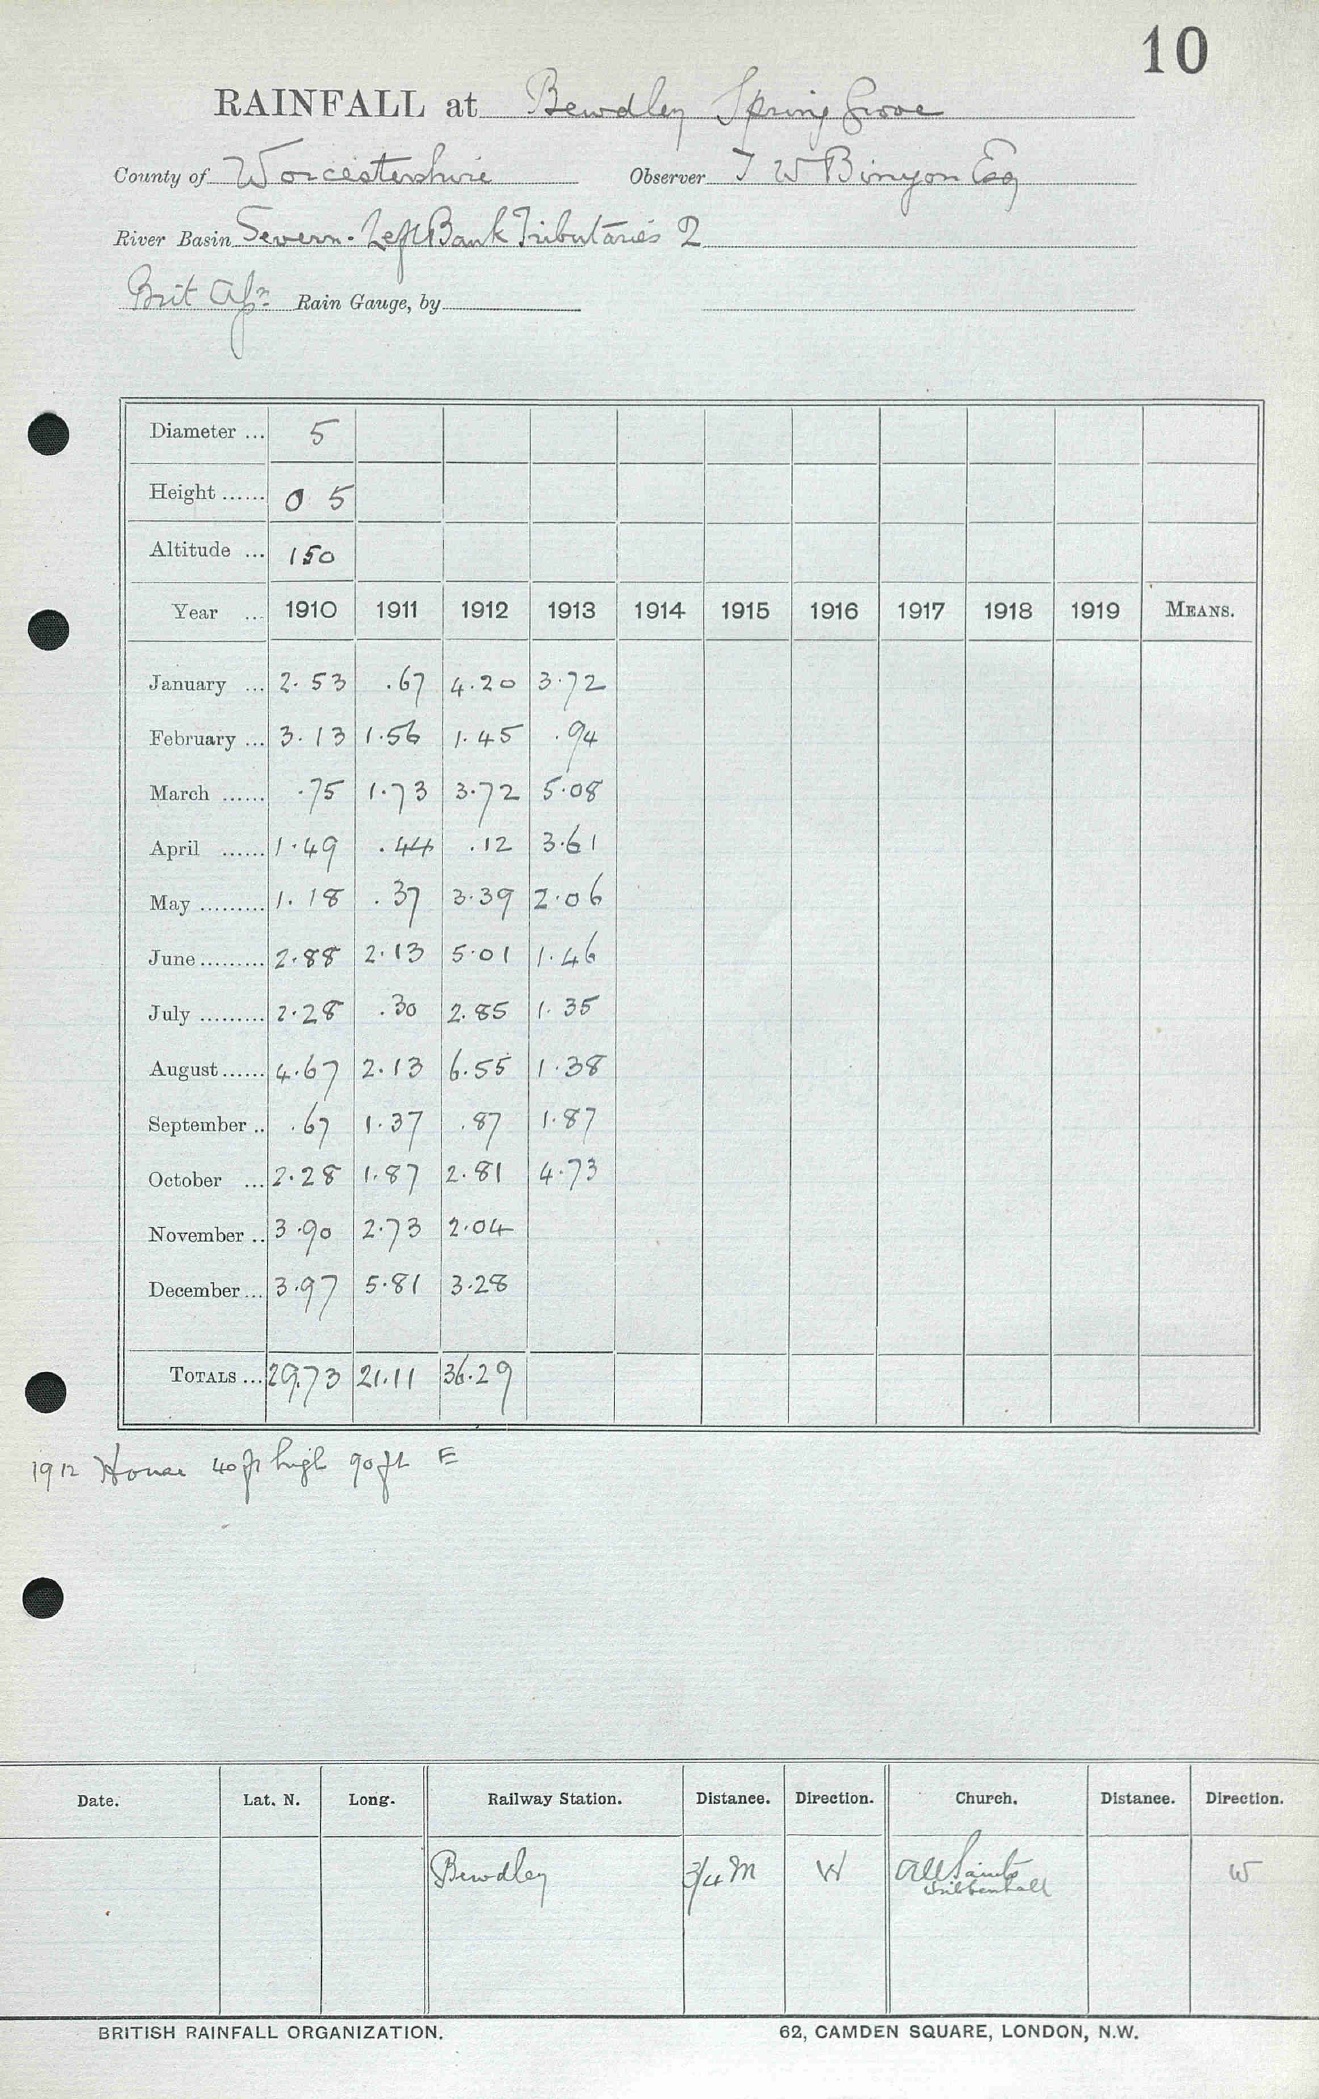 10
RAINFALL at Bewdley Spring Grove
County of Worcestershire Observer T W Binyon Esq
River Basin Severn. Left Bank Tributaries 2
Brit Assn Rain Gauge, by
Diameter ... 5
Height ...... 0 5
Altitude ... 150
Year ... 1910 1911 1912 1913 1914 1915 1916 1917 1918 1919 MEANS.
January ... 2.53 .67 4.20 3.72
February ... 3.13 1.56 1.45 .94
March ...... .75 1.73 3.72 5.08
April ...... 1.49 .44 .12 3.61
May ......... 1.18 .37 3.39 2.06
June ......... 2.88 2.13 5.01 1.46
July ......... 2.28 .30 2.85 1.35
August ...... 4.67 2.13 6.55 1.38
September .. .67 1.37 .87 1.87
October ... 2.28 1.87 2.81 4.73
November .. 3.90 2.73 2.04
December ... 3.97 5.81 3.28
TOTALS ... 29.73 21.11 36.29
1912 House 40ft high 90ft E
Date. Lat. N. Long. Railway Station. Distance. Direction. Church. Distance. Direction.
Bewdley 3/4 M W All Saints W
Wribbenhall
BRITISH RAINFALL ORGANIZATION. 62, CAMDEN SQUARE, LONDON, N.W.